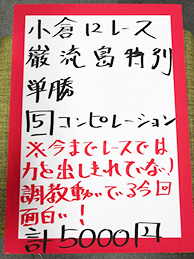 小倉12レース
巌流島特別
単勝
5コンピレーション
※今までレースでは
力を出しきれていない!
調教動いている今回
面白い!
計5000円